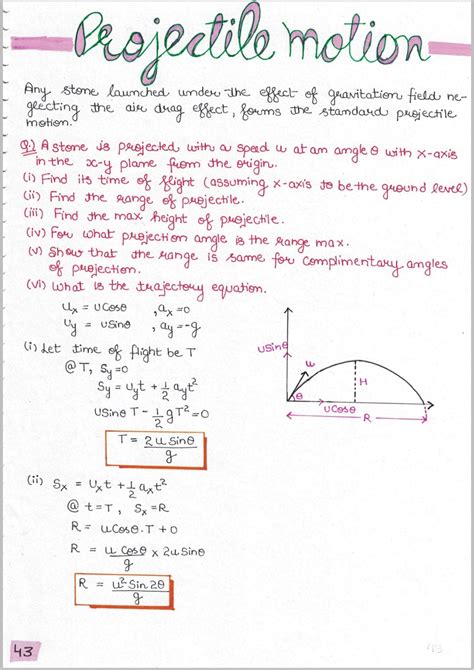 Projectile motion
Any stone launched under the effect of gravitation field ne-
glecting the air drag effect, forms the standard projectile
motion.
Q.) A stone is projected with a speed u at an angle θ with x-axis
in the x-y plane from the origin.
(i) Find its time of flight (assuming x-axis to be the ground level)
(ii) Find the range of projectile.
(iii) Find the max height of projectile.
(iv) For what projection angle is the range max.
(v) Show that the range is same for complimentary angles
of projection.
(vi) What is the trajectory equation.
uₓ = u cosθ , aₓ = 0
u_y = u sinθ , a_y = -g
(i) Let time of flight be T
@ T, S_y = 0
S_y = u_y t + 1/2 a_y t²
u sinθ T - 1/2 g T² = 0
T = 2u sinθ / g
u sinθ
u
θ
u cosθ
H
R
(ii) Sₓ = uₓ t + 1/2 aₓ t²
@ t = T , Sₓ = R
R = u cosθ . T + 0
R = u cosθ / g × 2u sinθ
R = u² sin 2θ / g
43